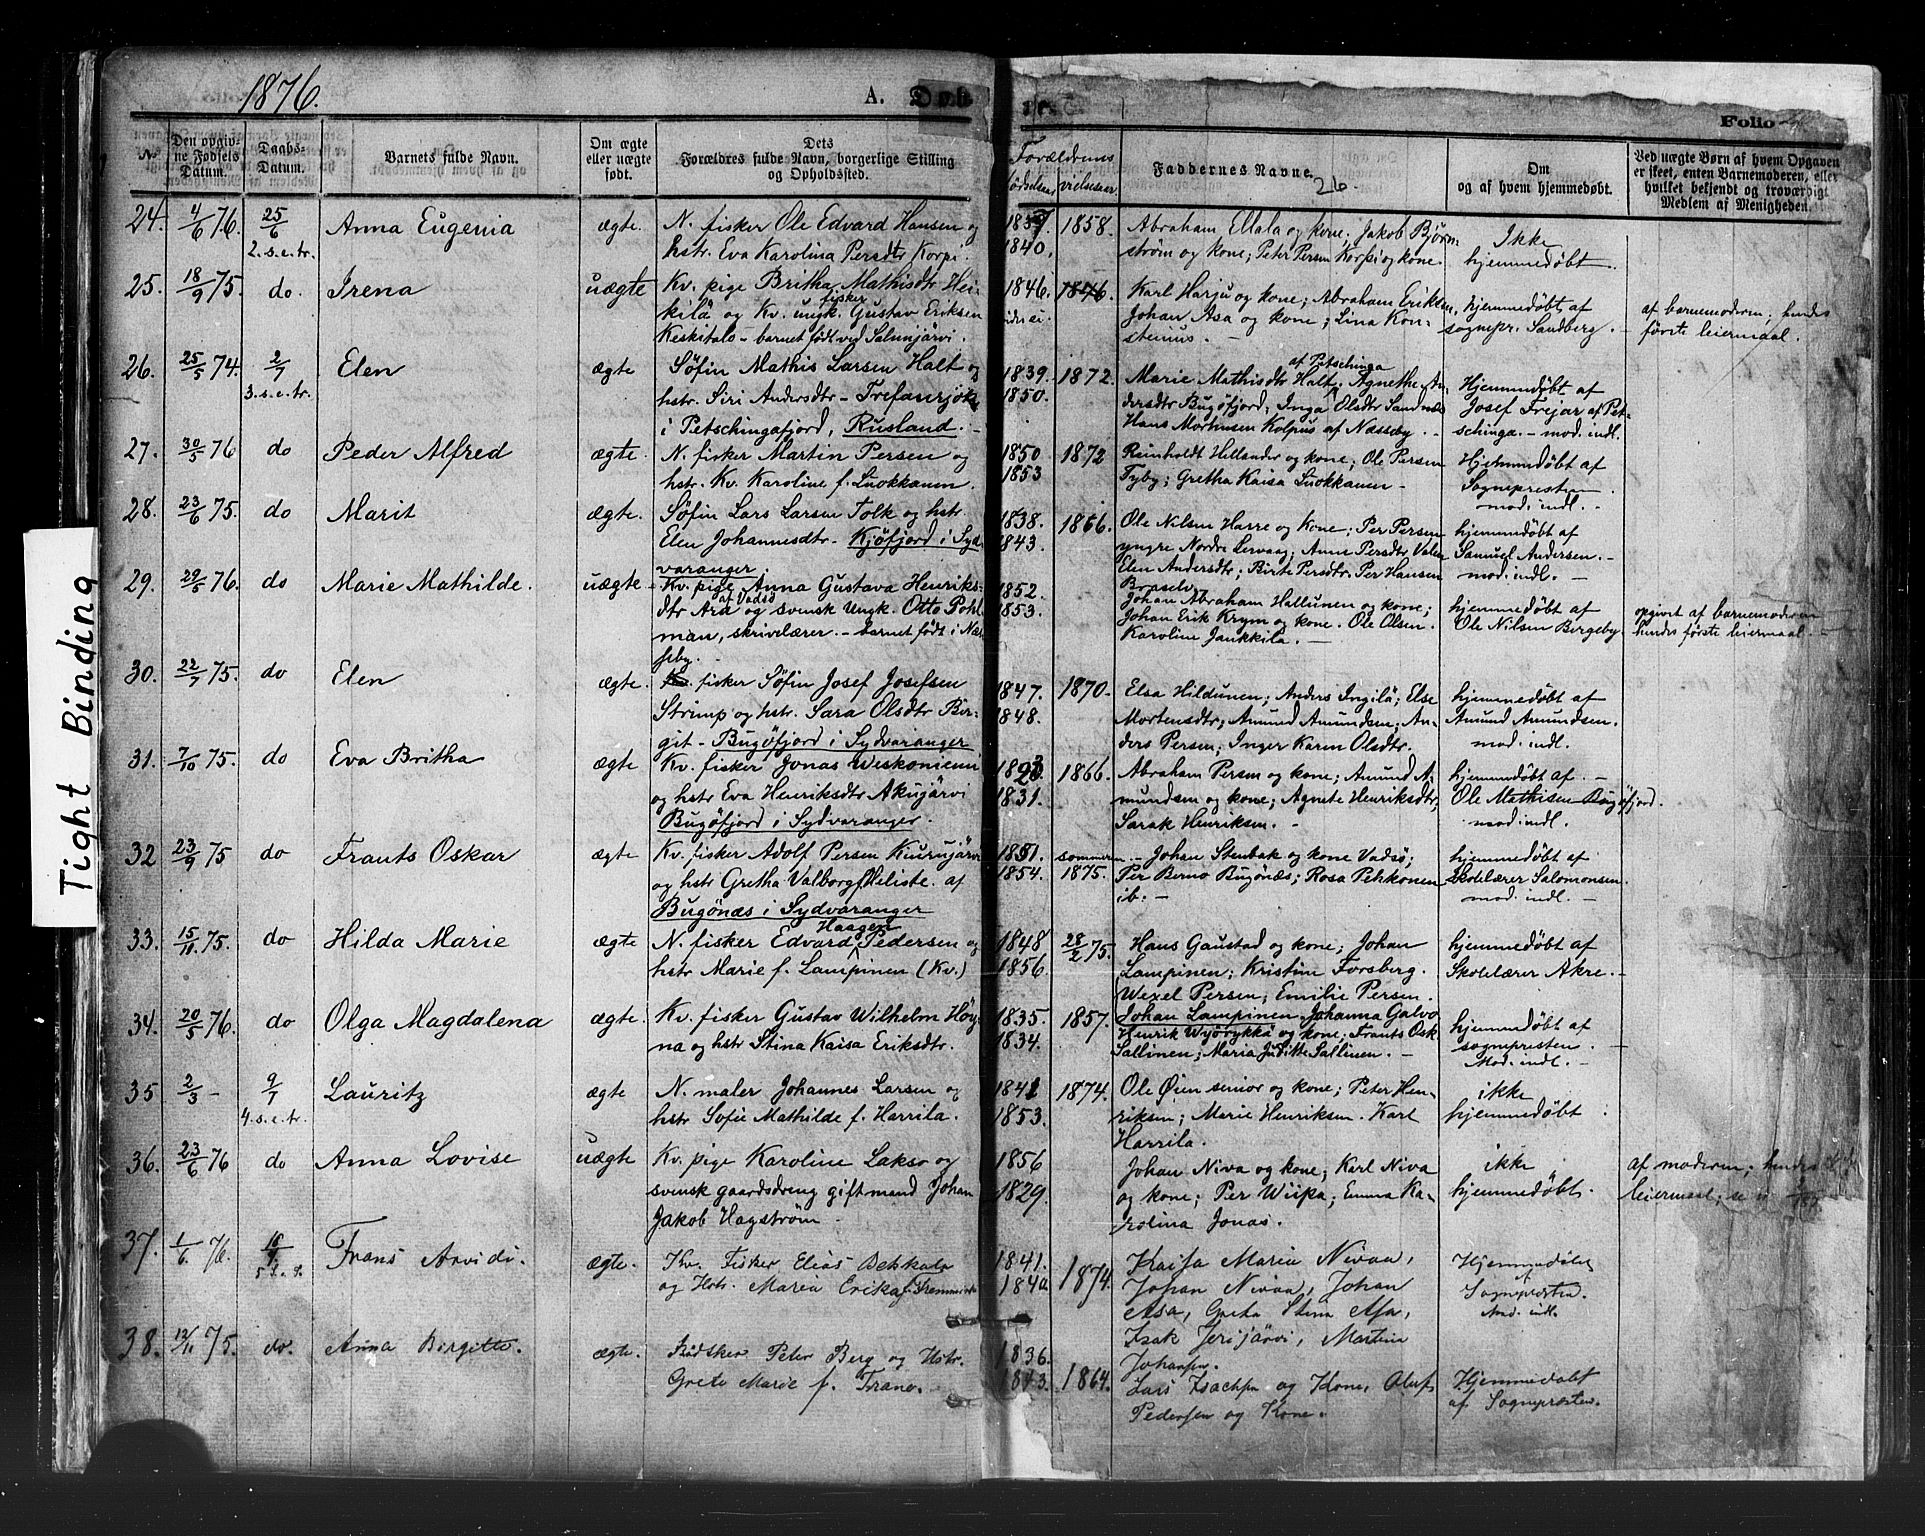 1876.
A. Døb
Folio
26.
Tight Binding
No.
Den opgiv-
ne Fødsels
Datum.
Daabs-
Datum.
Barnets fulde Navn.
Om ægte
eller uægte
født.
Dets
Forældres fulde Navn, borgerlige Stilling
og Opholdssted.
Forældrenes
Faddernes Navne.
Om
og af hvem hjemmedøbt.
Ved uægte Børn af hvem Opgaven
er skeet, enten Barnemoderen, eller
hvilket bekjendt og troværdigt
Medlem af Menigheden.
24. 4/6 76. 25/6 Anna Eugenia ægte. N. fisker Ole Edvard Hansen og 1858. Abraham Ellala og kone; Jakob Bjørn- Ikke
2.s.e.tr. hstr. Eva Karolina Persdtr Korpi. 1840. strøm og kone; Peter Persen Korpi og kone. hjemmedøbt.
25. 18/9 75. do. Irena uægte Kv. pige Britha Mathisdtr Hei- 1846. 1876. Karl Harju og kone; Abraham Eriksen, hjemmedøbt af af barnemoderen; hendes
kilä og Kv. ungk. fisker Gustav Eriksen Johan Asa og kone; Lina Kon- sognepr. Sandberg. første leiermaal.
Keskitalo - barnet født ved Salmijärvi. stenius.
26. 25/5 74. 2/7 Elen ægte Søfin Mathis Larsen Halt og 1839. 1872. Marie Mathisdtr Halt af Petschinga, Agnethe An- Hjemmedøbt af
3.s.e.tr. hstr. Siri Andersdtr - Trefanrjok 1850. dersdtr Bugøfjord; Inga Olsdtr Sandnæs Josef Trejar af Pet-
i Petschingafjord, Rusland. Hans Mortensen Kolpus af Næsseby. schinga. - mod. indl.
27. 30/5 76 do Peder Alfred ægte. N. fisker Martin Persen og 1850 1872 Reinholdt Hellander og kone; Ole Persen Hjemmedøbt af
hstr. Kv. Karoline f. Luokkanen. 1853 Tyby; Gretha Kaisa Luokkanen - Sognepresten.
mod. indl.
28. 23/6 75. do Marit ægte. Søfin Lars Larsen Tolk og hstr. 1838. 1866. Ole Nilsen Harre og kone; Per Persen hjemmedøbt af
Elen Johannesdtr - Kjøfjord i Syd- 1843. yngre Nordre Lervaag; Anne Persdtr Valen Samuel Andersen.
varanger. Elen Andersdtr; Birte Persdtr; Per Hansen mod. indl.
29. 29/5 76. do Marie Mathilde. uægte Kv. pige Anna Gustava Henriks- 1852. Johan Abraham Hallunen og kone; hjemmedøbt af opgivet af barnemoderen
dtr Ara af Vadsø og svensk Ungk. Otto Pohl- 1853. Johan Erik Krym og kone. Ole Olsen. Ole Nilsen Bergeby hendes første leiermaal.
man, skrivelærer. - barnet født i Næs- Karoline Jankkila.
seby.
30. 22/7 75. do Elen ægte. fisker Søfin Josef Josefsen 1847. 1870. Elsa Hildunen; Anders Ingilä; Else hjemmedøbt af
Strimp og hstr. Sara Olsdtr Bir- 1848. Mortensdtr; Amund Amundsen; An- Amund Amundsen.
git - Bugøfjord i Sydvaranger ders Persen; Inger Karen Olsdtr. mod. indl.
31. 7/10 75. do Eva Britha ægte Kv. fisker Jonas Weskoniemi 1823 1866. Abraham Persen og kone; Amund A- hjemmedøbt af
og hstr Eva Henriksdtr Akujärvi 1831. mundsen og kone; Agnete Henriksdtr, Ole Mathisen Bugøfjord.
Bugøfjord i Sydvaranger. Sarak Henriksen. mod. indl.
32 23/9 75 do Frants Oskar ægte Kv. fisker Adolf Persen Kiurujärvi 1851. sommeren Johan Stenbak og kone Vadsø; hjemmedøbt af
og hstr Gretha Valborg Heliste. af 1854. 1875. Per Berno Bugønæs; Rosa Pekkonen Skolelærer Salomonsen.
Bugønæs i Sydvaranger ib. mod. indl.
33. 15/11 75. do Hilda Marie ægte N. fisker Edvard Haagen Pedersen og 1848 28/2 75. Hans Gaustad og kone; Johan hjemmedøbt af
hstr Marie f. Lampinen (Kv.) 1856. Lampinen; Kristine Forsberg. Skolelærer Akre.
Wexel Persen; Emilie Persen.
34. 20/5 76. do Olga Magdalena ægte. Kv. fisker Gustav Wilhelm Höy- 1835. 1857. Johan Lampinen, Johanna Galvo hjemmedøbt af
na og hstr Stina Kaisa Eriksdtr. 1834. Henrik Wyörykkä og kone; Frants Osk. sognepresten.
Sallinen; Maria Juditte Sallinen. Mod. indl.
35 2/3 - 9/7 Lauritz ægte N. maler Johannes Larsen og 1841 1874. Ole Øien senior og kone; Peter Hen- ikke
4.s.e.tr. hstr Sofie Mathilde f. Harrila. 1853. riksen; Marie Henriksen. Karl hjemmedøbt
Harrila.
36. 23/6 76 do Anna Lovise uægte Kv. pige Karoline Lakso og 1856 Johan Niva og kone; Karl Niva ikke af moderen; hendes
svensk gaardsdreng gift mand Johan 1829. og kone; Per Wiipa; Emma Ka- hjemmedøbt. leiermaal; se
Jakob Hagstrøm rolina Jonas.
37. 1/6 76. 16/7 Frans Arvidi ægte. Kv. Fisker Elias Pekkala 1841. 1874. Kaisa Maria Nivaa, Hjemmedøbt
5 S. e. T. og Hstr. Maria Erika f. Fremmer 1840 Johan Nivaa, Johan af Sognepresten.
Asa, Greta Stina Asa, Mod. indl.
Isak Jerijärvi, Martin
Johansen.
38. 12/11 75. do. Anna Birgitte. ægte. Bødsker Peter Berg og Hstr. 1836. 1864. Lars Isachsen og Kone, Oluf Hjemmedøbt
Grete Marie f. Trane. 1843. Pedersen og Kone. af Sognepresten.